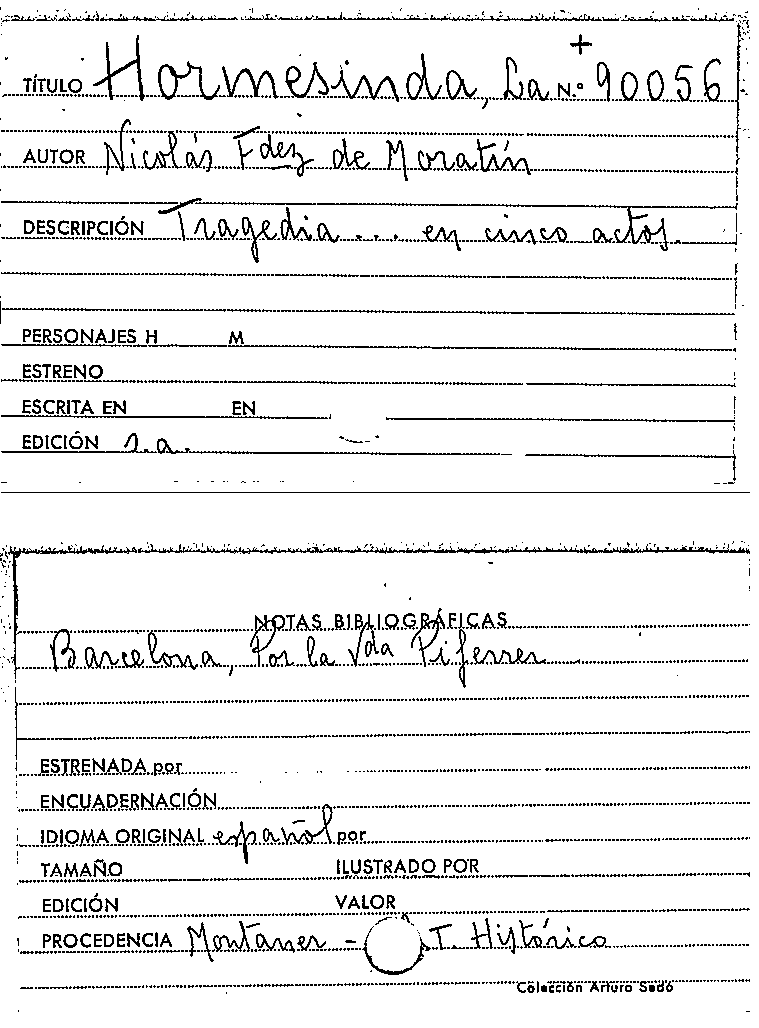 +
TÍTULO Hormesinda, La N.º 90056
AUTOR Nicolás Fdez de Moratín
DESCRIPCIÓN Tragedia ... en cinco actos.
PERSONAJES H M
ESTRENO
ESCRITA EN EN
EDICIÓN s.a.
NOTAS BIBLIOGRÁFICAS
Barcelona, Por la Vda Piferrer
ESTRENADA por
ENCUADERNACIÓN
IDIOMA ORIGINAL español por
TAMAÑO ILUSTRADO POR
EDICIÓN VALOR
PROCEDENCIA Montaner - T. Histórico
Colección Arturo Sedó